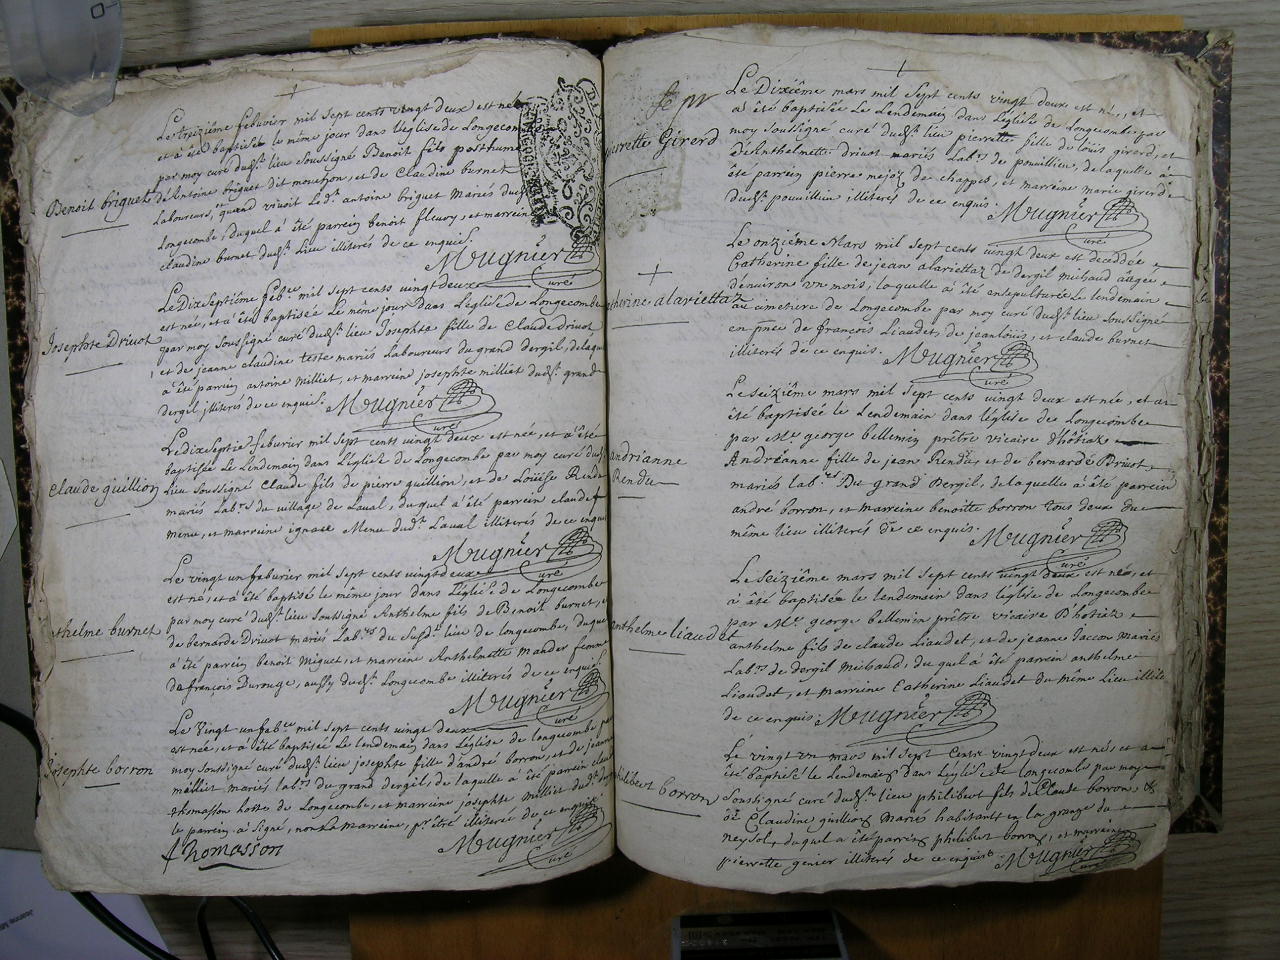 Le treizième feburier mil sept cents vingt deux est né
et a été baptisé le même jour dans l'eglise de Longecombe
par moy curé dudt. lieu soussigné Benoit fils posthume
Benoit briguet
d'Antoine briguet dit mouchon, et de Claudine burnet
Laboureurs, quand vivoit led. antoine briguet Mariés dudt.
Longecombe, duquel a été parrein benoit fleury, et marreine
claudine burnet dudt. lieu illiterés de ce enquis.
Mugnier
Curé
Le Dixseptième feb.er mil sept cents vingt deux
est née, et a été baptisée Le même jour Dans L'eglise de Longecombe
Josephte Drivot
par moy soussigné curé dudt. lieu Josephte fille de Claude drivot
et de jeanne claudine teste mariés Laboureurs du grand dergil, de laquelle
a été parrein antoine milliet, et marreine josephte milliet dudt. grand
dergil illiterés de ce enquis.
Mugnier
Curé
Le dixseptie. feburier mil sept cents vingt deux est née, et a été
baptisée Le Lendemain dans L'eglise de Longecombe par moy curé dudt.
Claude guillion
Lieu soussigné Claude fils de pierre guillion, et de Loüise Rendu
mariés Lab.rs du village de Laval, duquel a été parrein claude
menu, et marreine ignace Menu dudt. Laval illiterés de ce enquis
Mugnier
Curé
Le vingt un feburier mil sept cents vingt deux
est né, et a été baptisé le même jour dans L'eglise de Longecombe
par moy curé dudt. lieu soussigné Anthelme fils de Benoit burnet, et
thelme burnet
de bernarde Drivot mariés Lab.rs du susdt. lieu de longecombe, duquel
a été parrein benoit Miguet, et marreine Anthelmette mander femme
de françois Durouge, aussy dudt. Longecombe illiterés de ce enquis.
Mugnier
curé
Le Vingt un feb.er mil sept cents vingt deux
est née, et a été baptisée Le lendemain dans L'eglise de longecombe par
Josephte borron
moy soussigné curé dudt. lieu josephte fille d'andré borron, et de jeanne
milliet mariés lab.rs du grand dergil, de laquelle a été parrein claude
thomasson hoste de Longecombe, et marreine josephte milliet dudt. dergil
le parrein a signé, non La marreine, pr être illiterée de ce enquise
Thomasson
Mugnier
Curé
Le Dixième mars mil sept cents vingt deux est née, et
a été baptisée Le Lendemain dans L'eglise de Longecombe par
moy soussigné curé dudt. lieu pierrette fille de loüis girerd, et
pierrette Girerd
d'Anthelmette drivot mariés Lab.rs de pouvillieu, de laquelle a
été parrein pierre mejoz de chappes, et marreine marie girerd
dudt. pouvillieu illiterés de ce enquis.
Mugnier
Curé
Le onzième Mars mil sept cents vingt deux est decedée
Catherine fille de jean alariettaz de dergil mibaud âagée
d'environ un mois, laquelle a été ensepulturée Le lendemain
therine alariettaz
au cimetière de Longecombe par moy curé dudt. lieu soussigné
en pñce de françois Liaudet, de jean loüis, et claude burnet
illiterés de ce enquis.
Mugnier
Curé
Le seizième mars mil sept cents vingt deux est née, et a
été baptisée le Lendemain dans l'eglise de Longecombe
par Mre george bellemin prêtre vicaire d'hôtiaz
andrianne
Rendu
Andréanne fille de jean Rendu, et de bernarde Drivot
mariés lab.rs Du grand Dergil, de laquelle a été parrein
andré borron, et marreine benoitte borron tous deux du
même lieu illiterés de ce enquis.
Mugnier
Curé
Le seizième mars mil sept cents vingt deux est né, et
a été baptisé le lendemain dans leglise de Longecombe
par Mre george bellemin prêtre vicaire D'hôtiaz
anthelme liaudet
anthelme fils de claude Liaudet, et de jeanne Jaccon mariés
Lab.rs de dergil mibaud, duquel a été parrein anthelme
Liaudet, et marreine Catherine Liaudet du même Lieu illite
de ce enquis
Mugnier
Curé
Le vingt un mars mil sept Cents vingt deux est né, et a
été baptisé le Lendemain dans Leglise de longecombe par moy
philibert borron
soussigné curé dudt. lieu philibert fils de Claude borron, &
de Claudine guillion Mariés habitants en La grange du
neysol, duquel a été parrein philibert borron, et marreine
pierrette genier illiterés de ce enquis
Mugnier
Curé